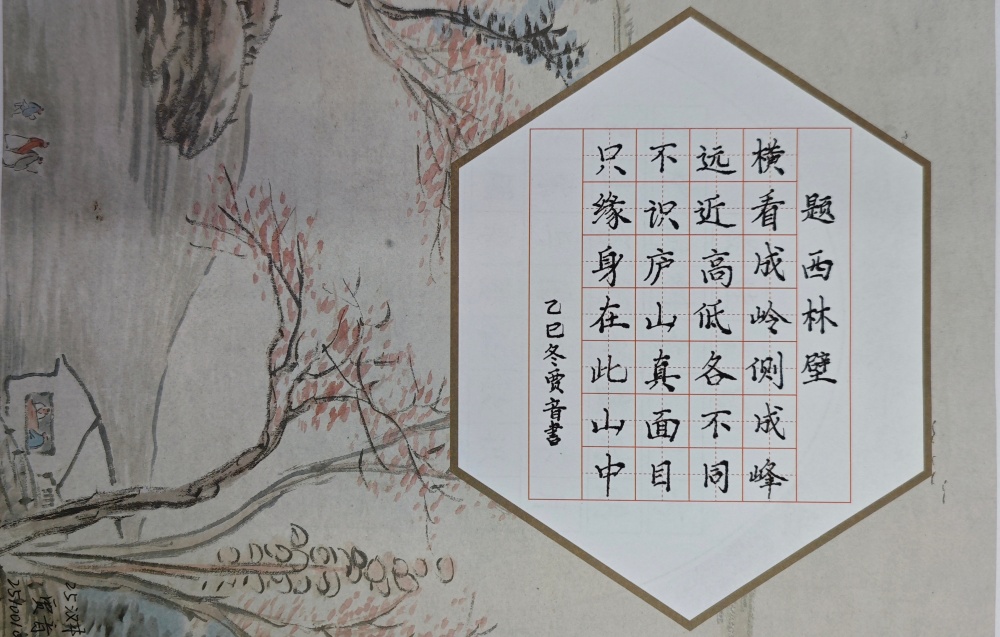 题西林壁
横看成岭侧成峰
远近高低各不同
不识庐山真面目
只缘身在此山中
乙巳冬贾音書
25汉
贾音